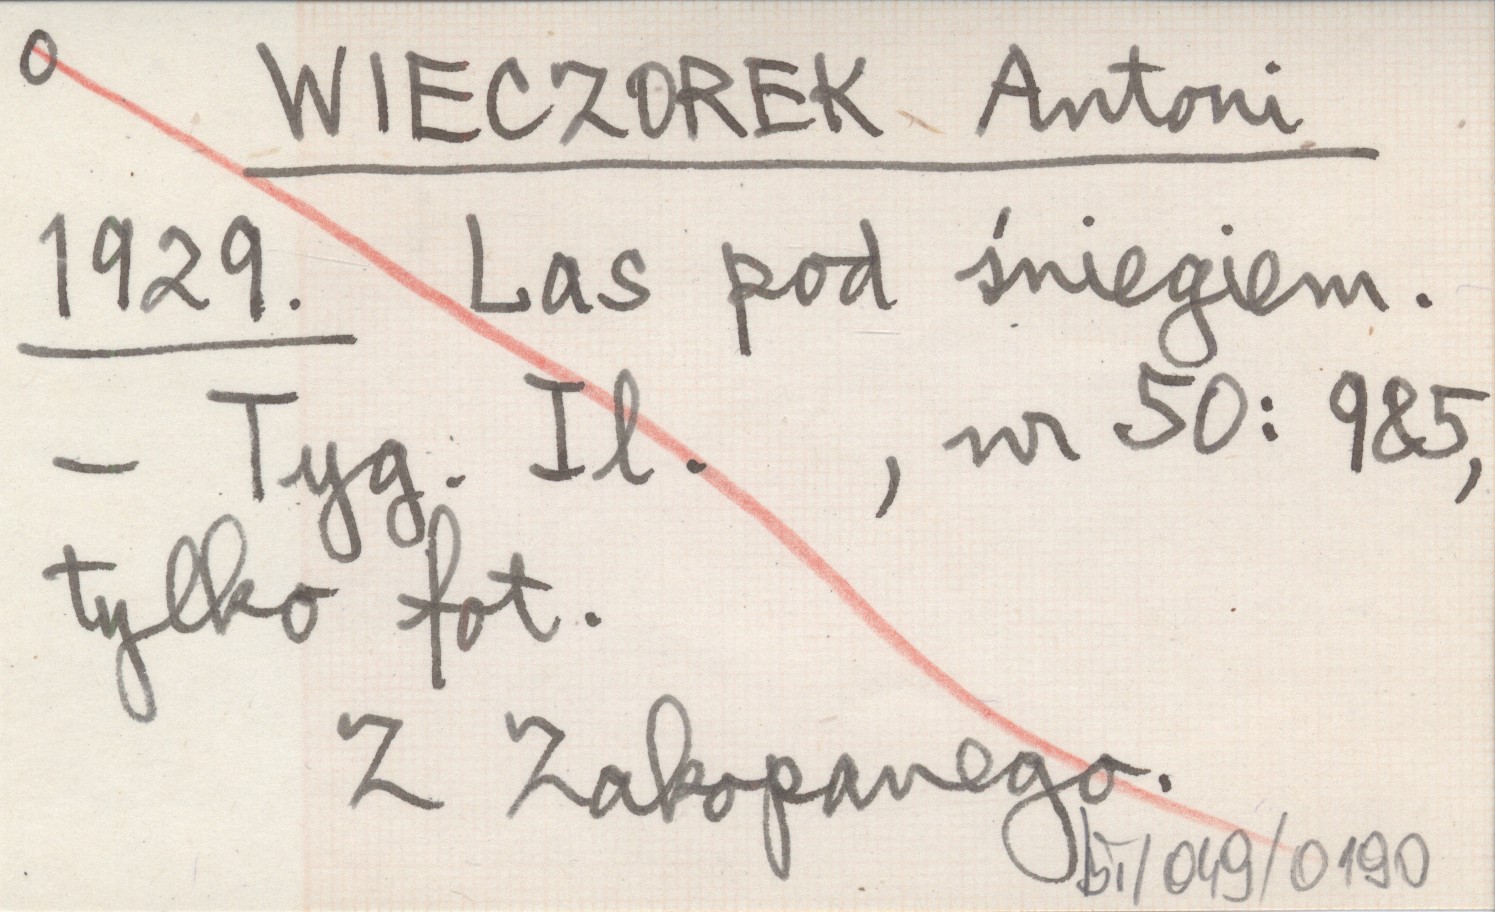 0 WIECZOREK Antoni
1929. Las pod śniegiem.
– Tyg. Il. , nr 50: 985,
tylko fot.
Z Zakopanego.
/049/0190